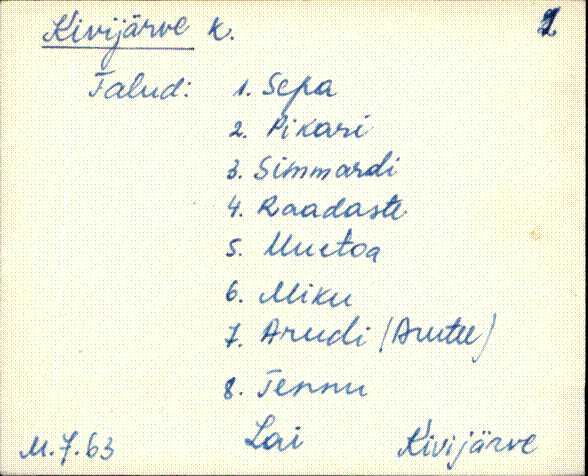 Kivijärve k. 2
Talud: 1. Sepa
2. Pikari
3. Simmardi
4. Raadaste
5. Muetoa
6. Miku
7. Arudi (Arutee)
8. Tennu
Lai Kivijärve
M.7.63